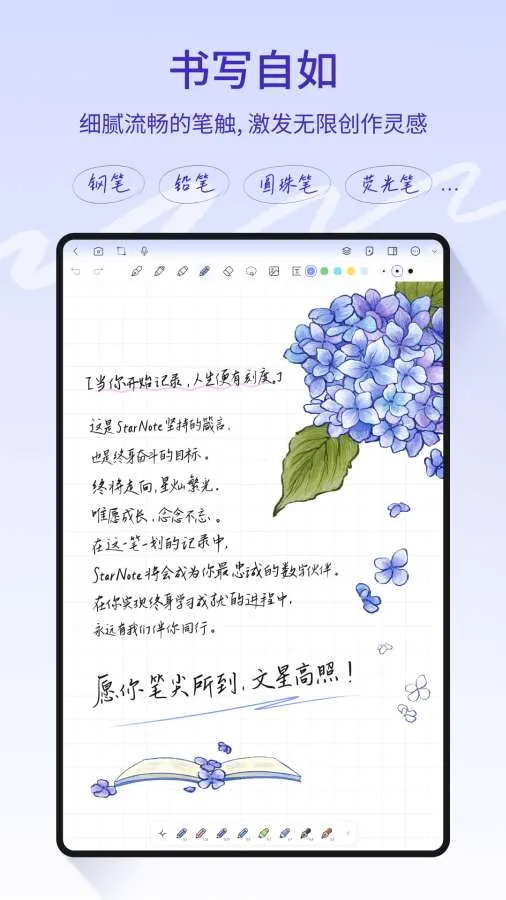 书写自如
细腻流畅的笔触, 激发无限创作灵感
钢笔 铅笔 圆珠笔 荧光笔 ...
「当你开始记录,人生便有刻度。」
这是StarNote坚持的箴言,
也是终身奋斗的目标。
终将走向,星灿繁光.
唯愿成长,念念不忘。
在这一笔一划的记录中,
StarNote将会成为你最忠诚的数字伙伴。
在你实现终身学习成就的进程中,
永远有我们伴你同行。
愿你笔尖所到,文星高照!